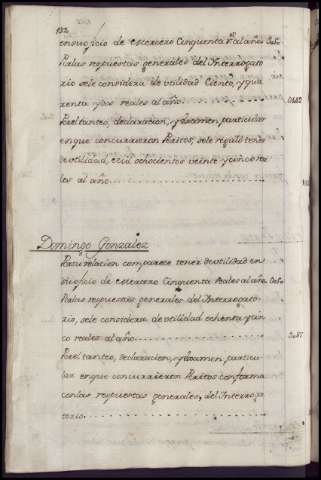 132
en su ofizio de esterero Cinquenta R.s al año
Por las respuestas generales del Interrogato
rio se le considera de utilidad Ciento, y qua
renta y dos reales al año
Por el tanteo, declaracion, y examen, particular
en que concurrieron Peritos, se le reguló tener
de utilidad ochocientos veinte y cinco rea
les al año
Domingo Gonzalez
Por su relacion comparece tener de utilidad en
su ofizio de esterero Cinquenta Reales al año
Por las respuestas generales del Interrogato
rio, se le considera de utilidad ochenta y cin
co reales al año
Por el tanteo, declaracion, y examen, particu
lar en que concurrieron Peritos conforma
con las respuestas generales, del Interroga
torio